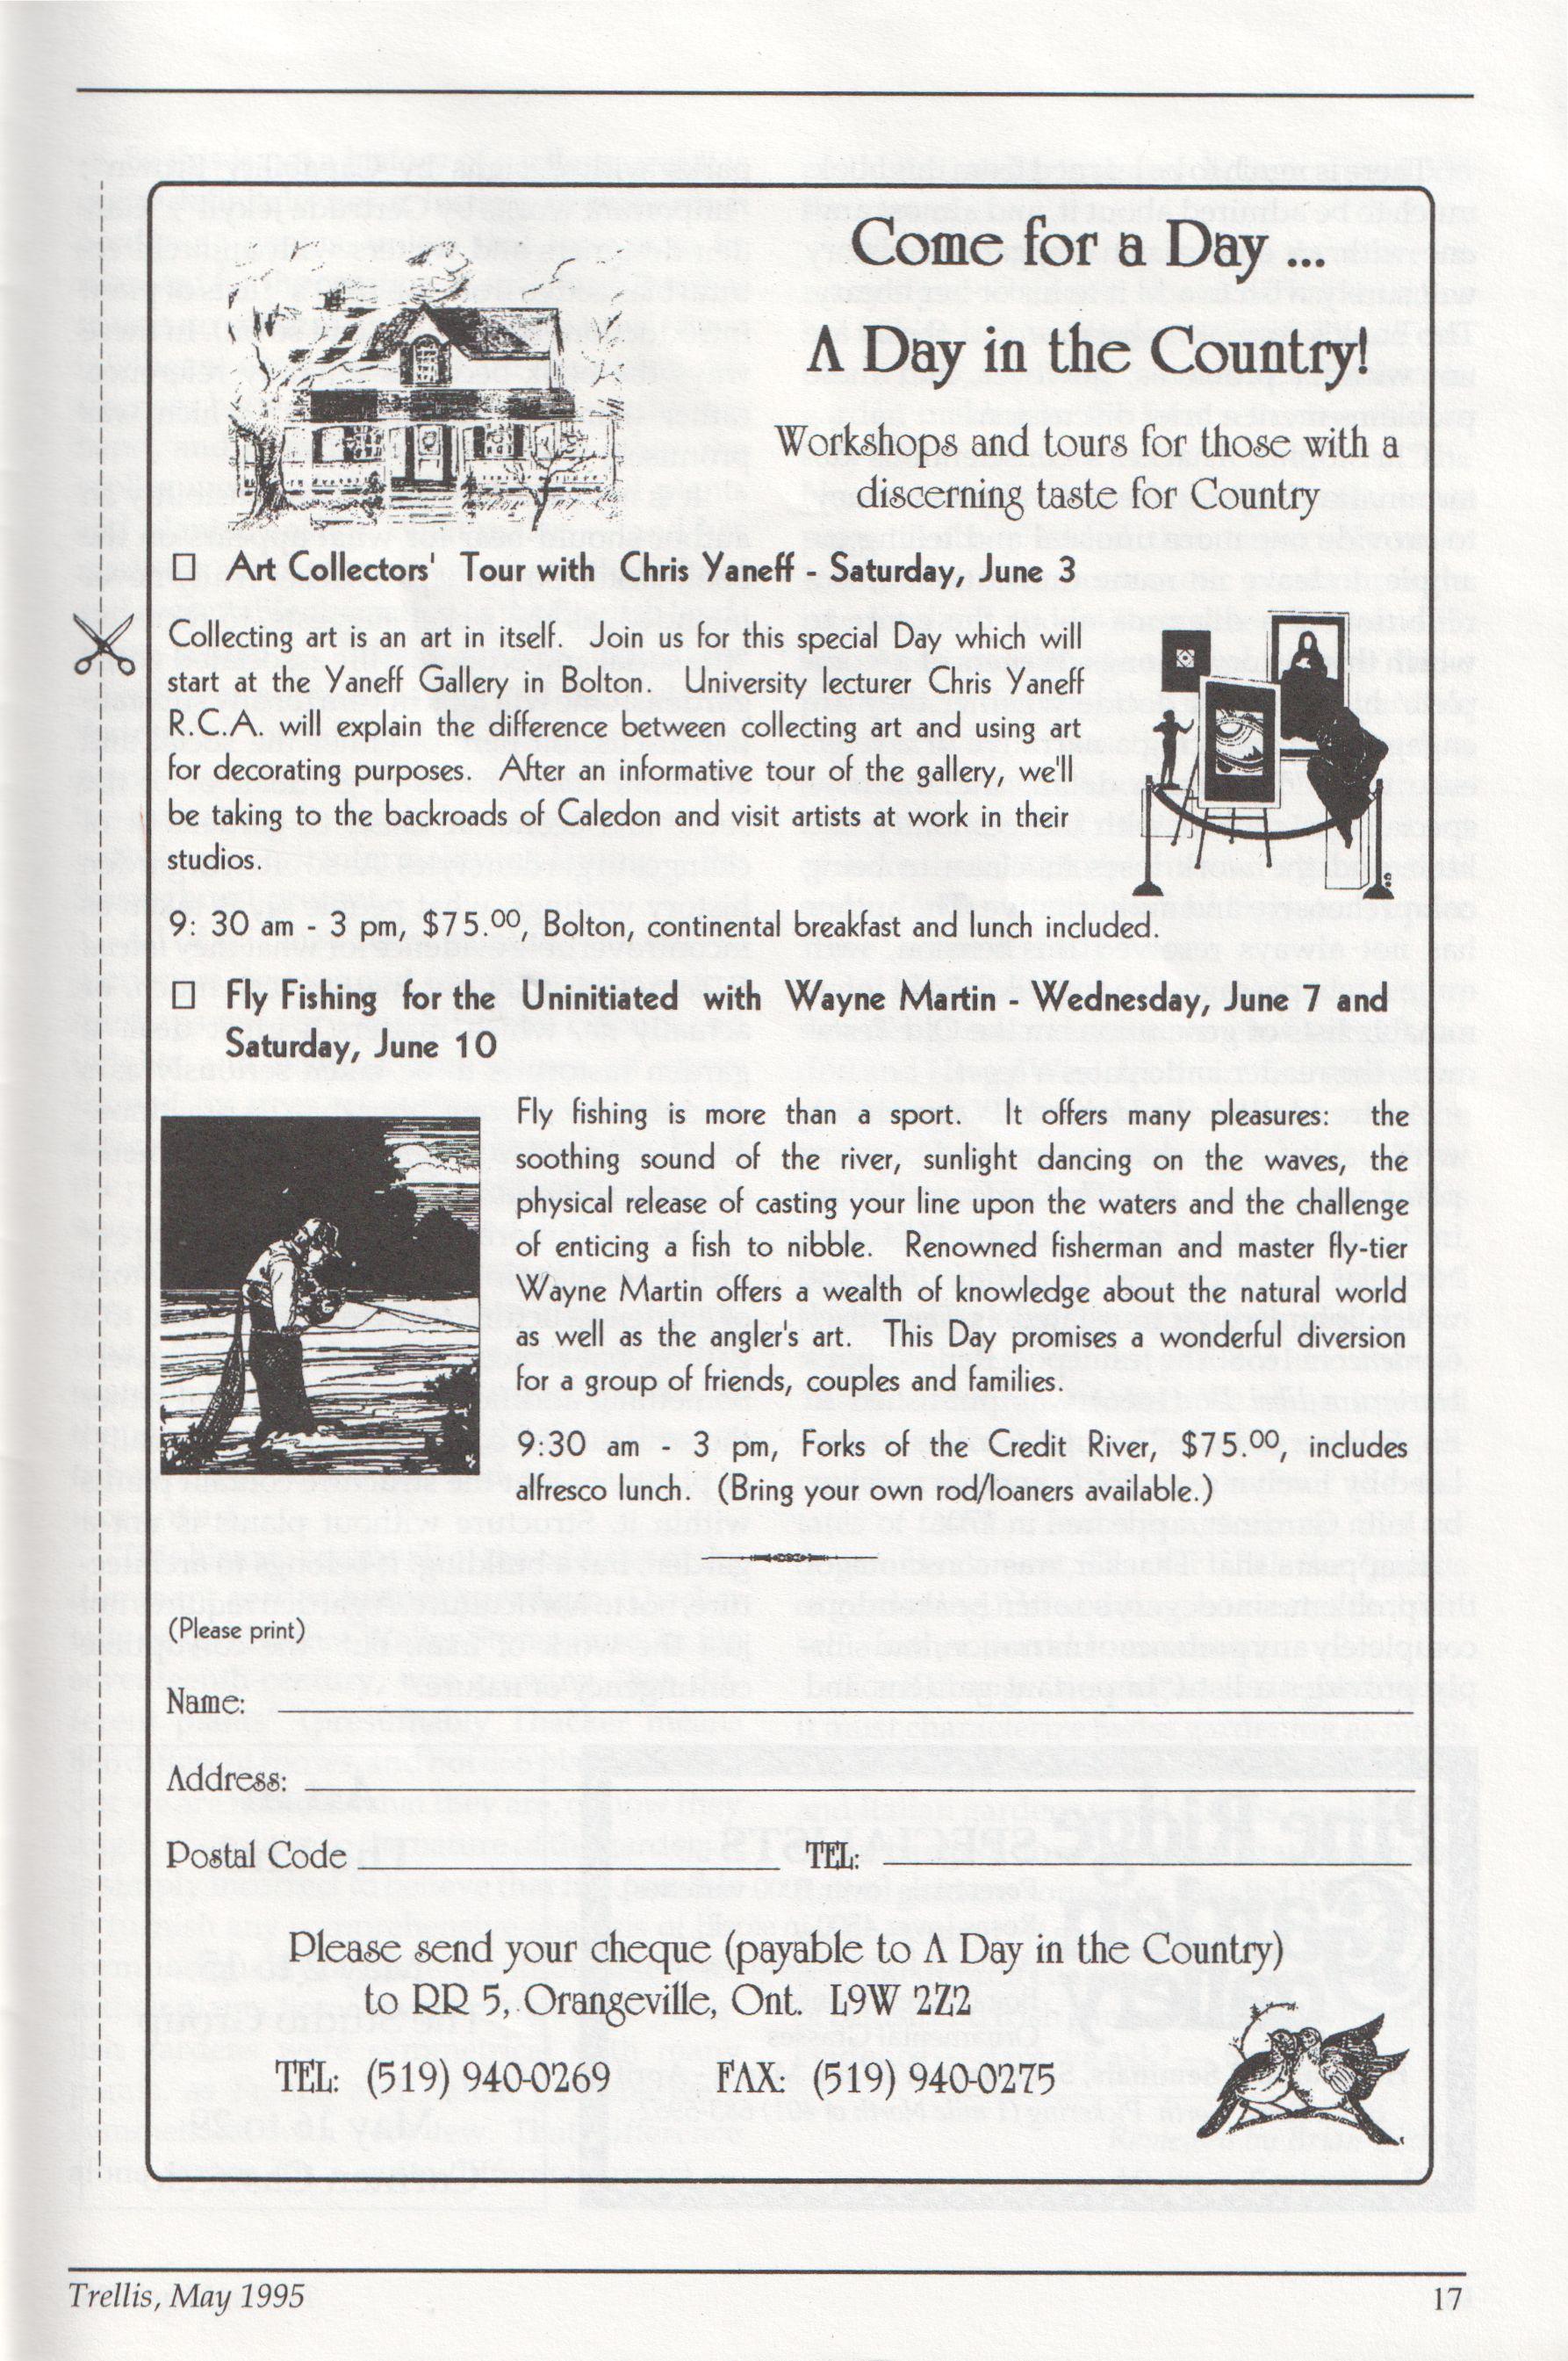 Come for a Day ...
A Day in the Country!
Workshops and tours for those with a
discerning taste for Country
□ Art Collectors' Tour with Chris Yaneff - Saturday, June 3
Collecting art is an art in itself. Join us for this special Day which will
start at the Yaneff Gallery in Bolton. University lecturer Chris Yaneff
R.C.A. will explain the difference between collecting art and using art
for decorating purposes. After an informative tour of the gallery, we'll
be taking to the backroads of Caledon and visit artists at work in their
studios.
9: 30 am - 3 pm, $75.00, Bolton, continental breakfast and lunch included.
□ Fly Fishing for the Uninitiated with Wayne Martin - Wednesday, June 7 and
Saturday, June 10
Fly fishing is more than a sport. It offers many pleasures: the
soothing sound of the river, sunlight dancing on the waves, the
physical release of casting your line upon the waters and the challenge
of enticing a fish to nibble. Renowned fisherman and master fly-tier
Wayne Martin offers a wealth of knowledge about the natural world
as well as the angler's art. This Day promises a wonderful diversion
for a group of friends, couples and families.
9:30 am - 3 pm, Forks of the Credit River, $75.00, includes
alfresco lunch. (Bring your own rod/loaners available.)
(Please print)
Name:
Address:
Postal Code TEL:
Please send your cheque (payable to A Day in the Country)
to RR 5, Orangeville, Ont. L9W 2Z2
TEL: (519) 940-0269 FAX: (519) 940-0275
Trellis, May 1995 17